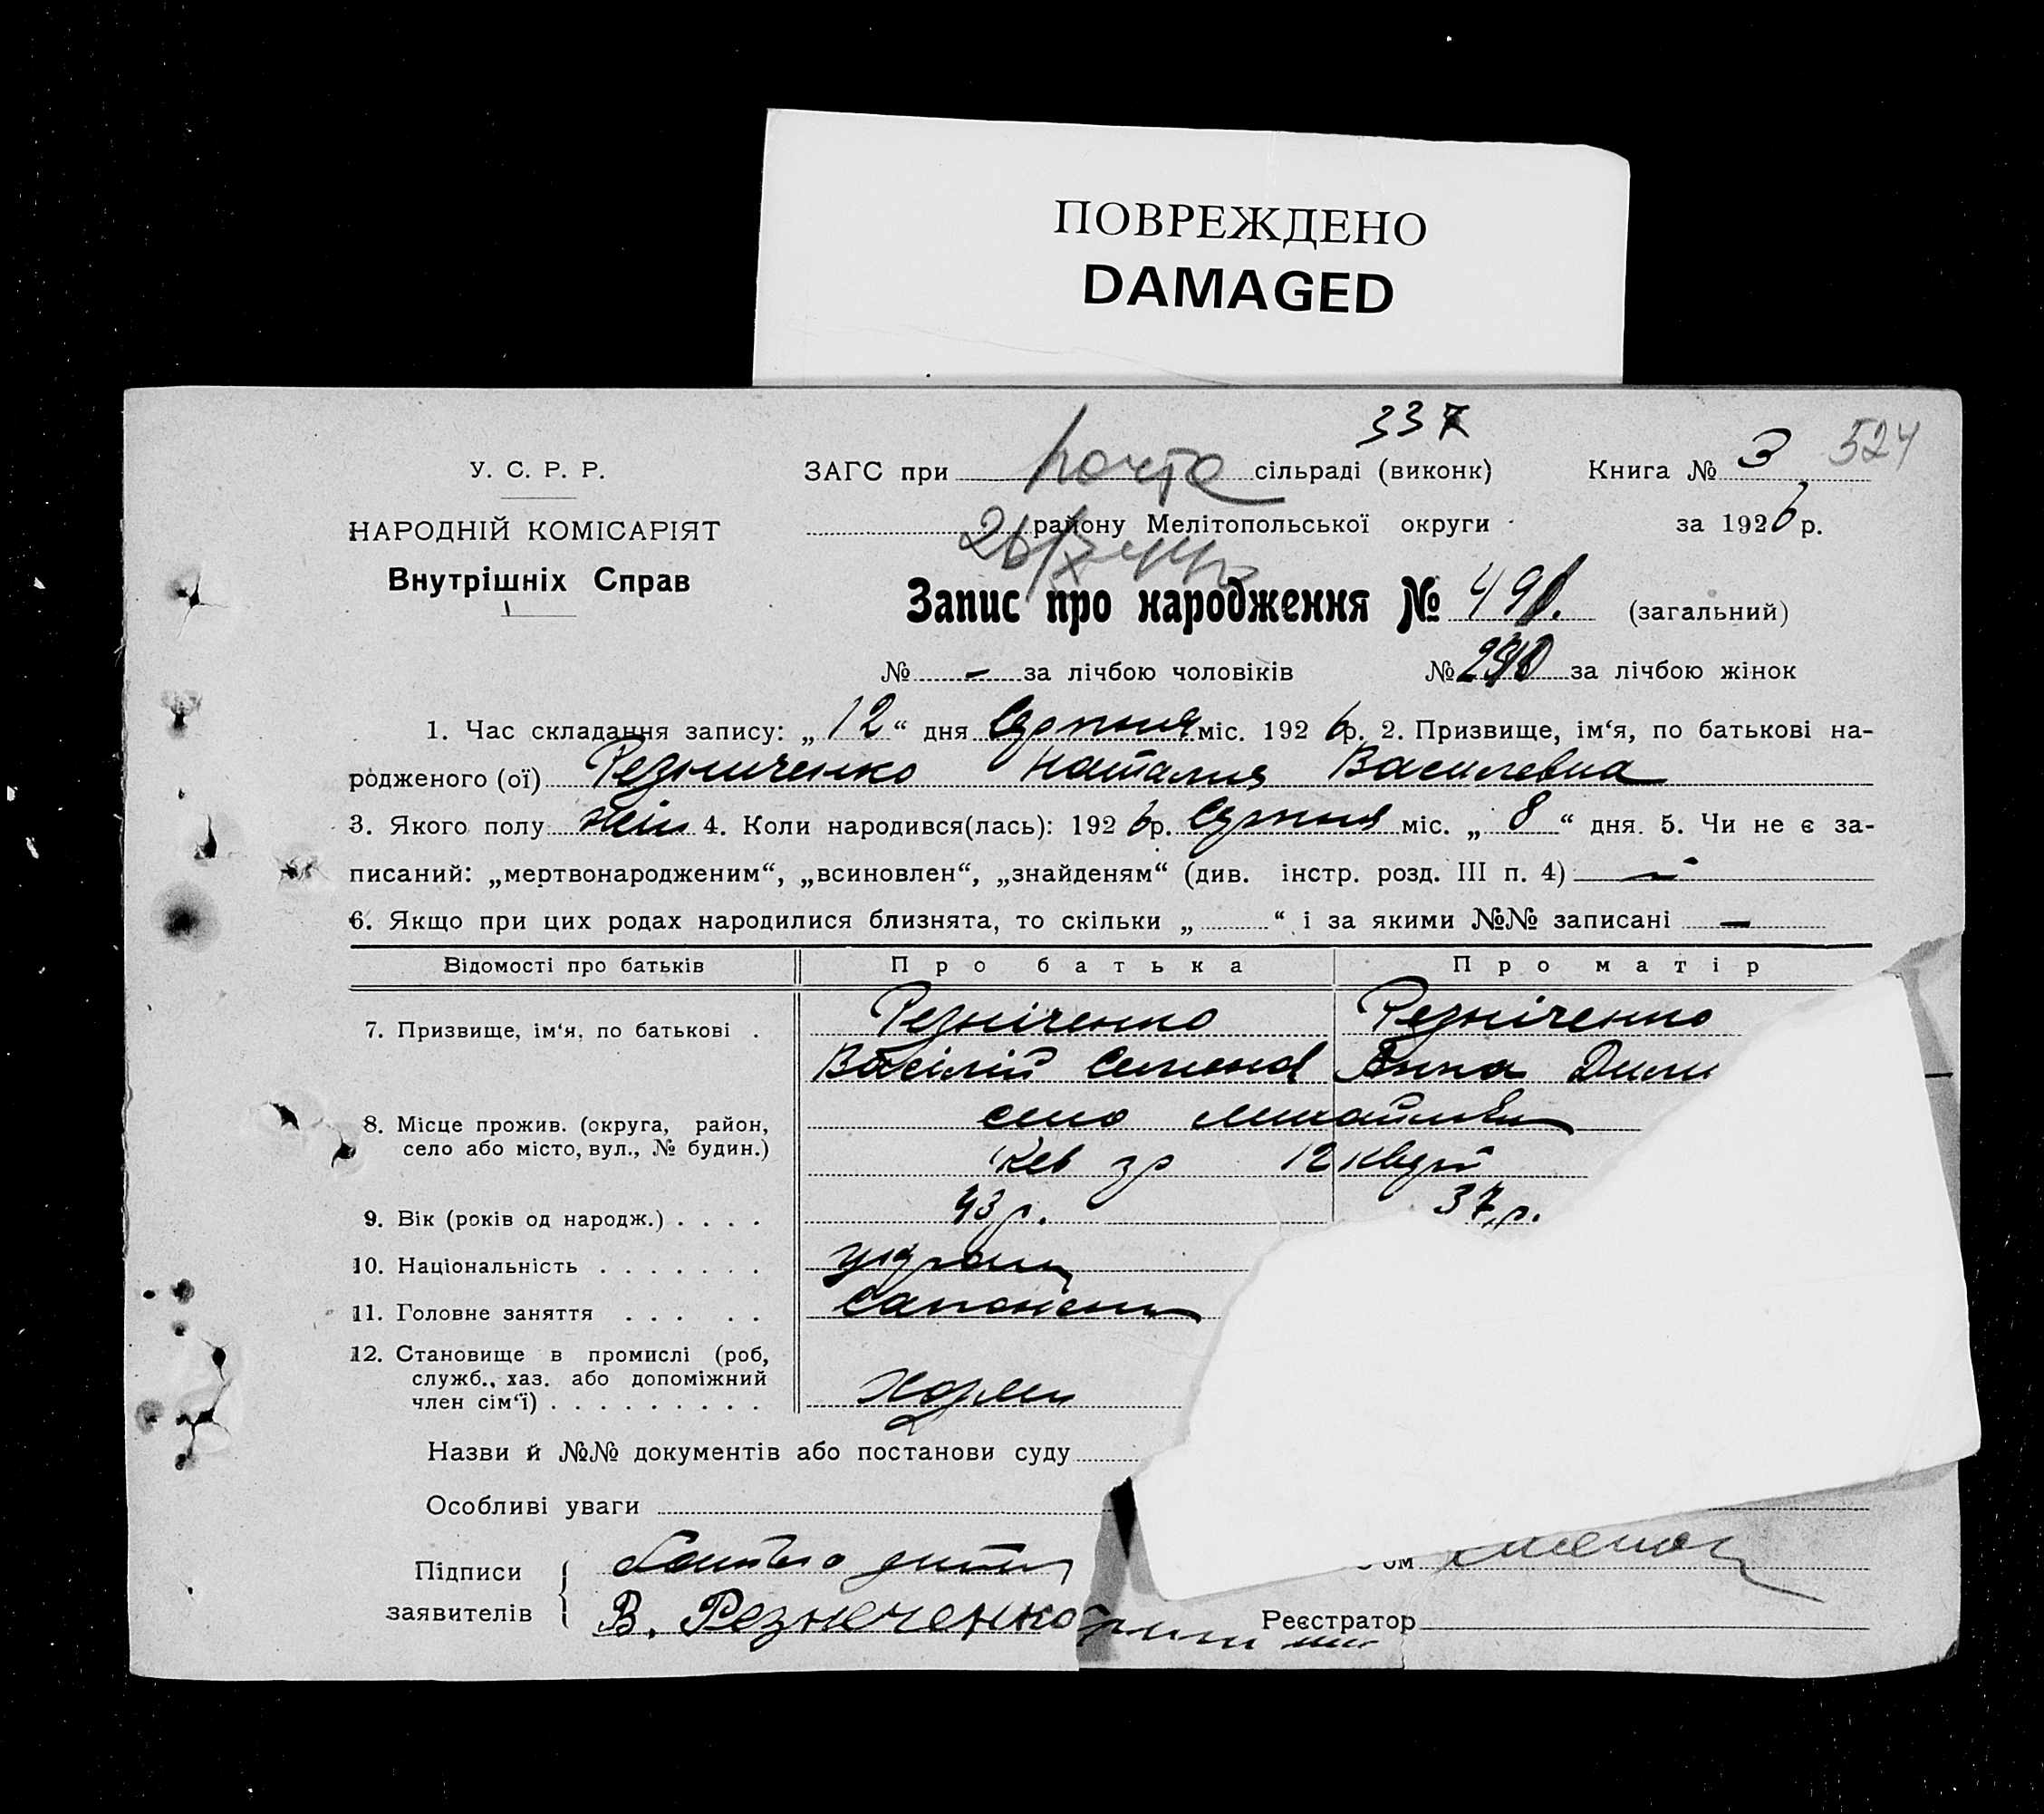 ПОВРЕЖДЕНО
DAMAGED
337
524
У. С. Р. Р.
ЗАГС при почта сільраді (виконк)
Книга № 3
НАРОДНІЙ КОМІСАРІЯТ
району Мелітопольської округи
за 1926 р.
Внутрішніх Справ
Запис про народження № 491. (загальний)
№ - за лічбою чоловіків № за лічбою жінок
1. Час складання запису: „12“ дня Серпня міс. 1926 р. 2. Призвище, ім‘я, по батькові на-
родженого (ої) Резниченко Наталия Василевна
3. Якого полу жін 4. Коли народився(лась): 1926 р. Серпня міс. „8“ дня. 5. Чи не є за-
писаний: „мертвонародженим“, „всиновлен“, „знайденям“ (див. інстр. розд. III п. 4) —
6. Якщо при цих родах народилися близнята, то скільки „ “ і за якими №№ записані —
Відомості про батьків Про батька Про матір
7. Призвище, ім‘я, по батькові . Резніченко Резніченко
Васілій Семенов Анна Дими
8. Місце прожив. (округа, район, село Михайлівка
село або місто, вул., № будин.) 12
9. Вік (років од народж.) . . . . 43 р. 37 р.
10. Національність . . . . . . . україн
11. Головне заняття . . . . .
12. Становище в промислі (роб,
служб., хаз. або допоміжний
член сім‘ї) . . . . . . . . .
Назви й №№ документів або постанови суду
Особливі уваги
Підписи Батько дити
ом
заявителів В. Резниченко
Реєстратор